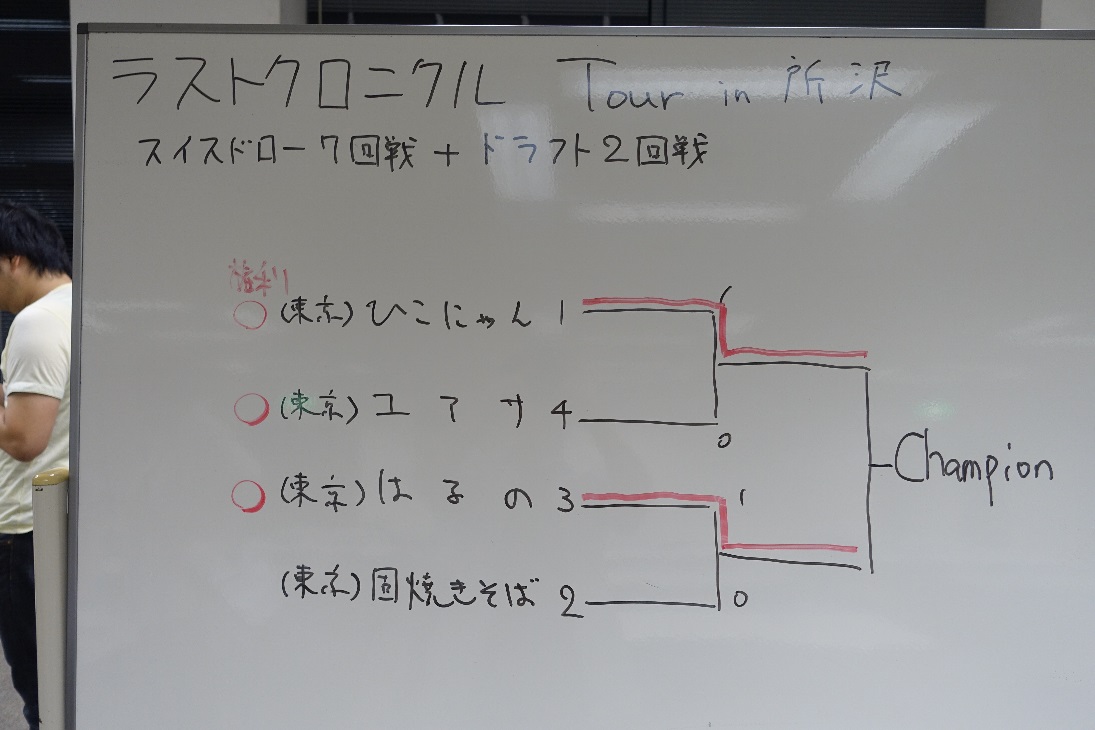 ラストクロニクル Tour in 所沢
スイスドロー7回戦+ドラフト2回戦
権利
○(東京)ひこにゃん 1
1
○(東京)ユアサ 4
0
○(東京)はるの 3
1
(東京)固焼きそば 2
0
Champion